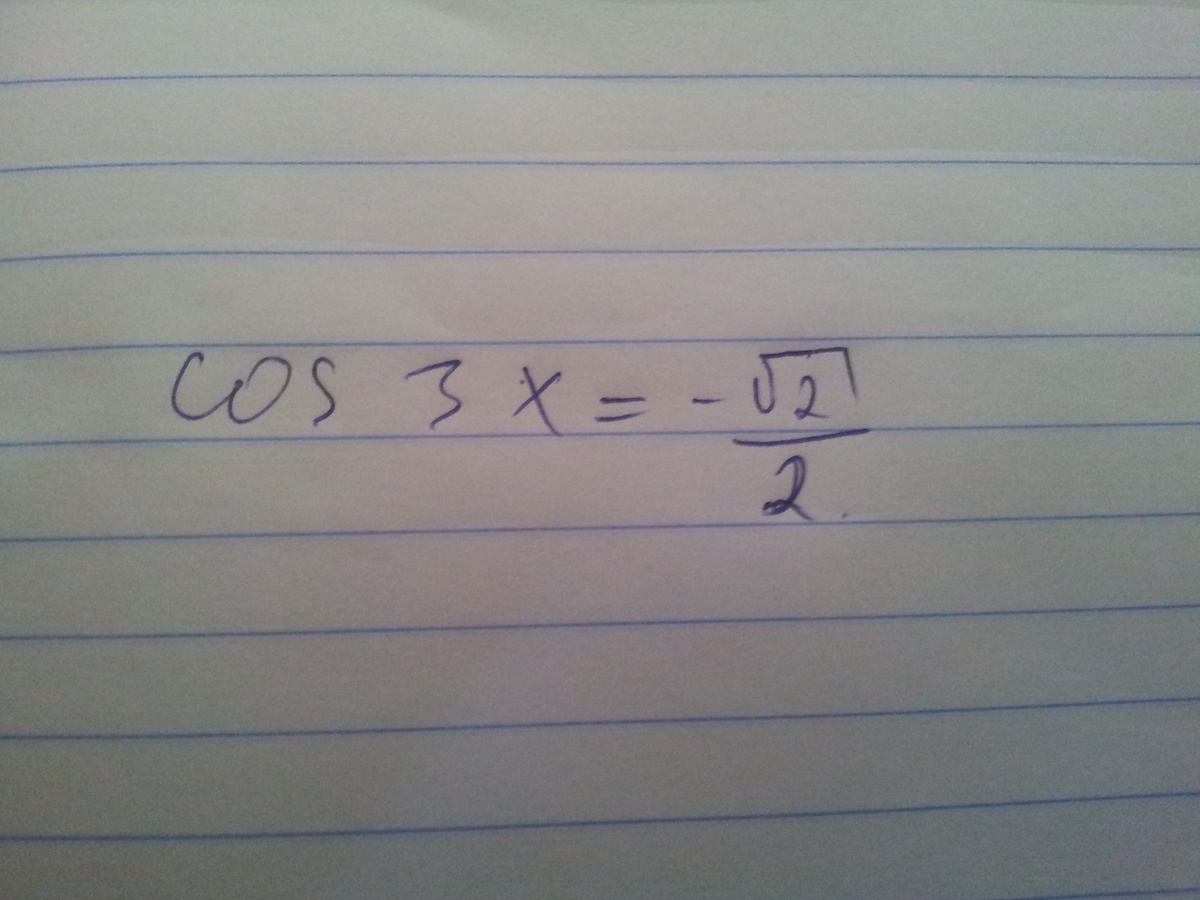 cos 3x = -√2/2